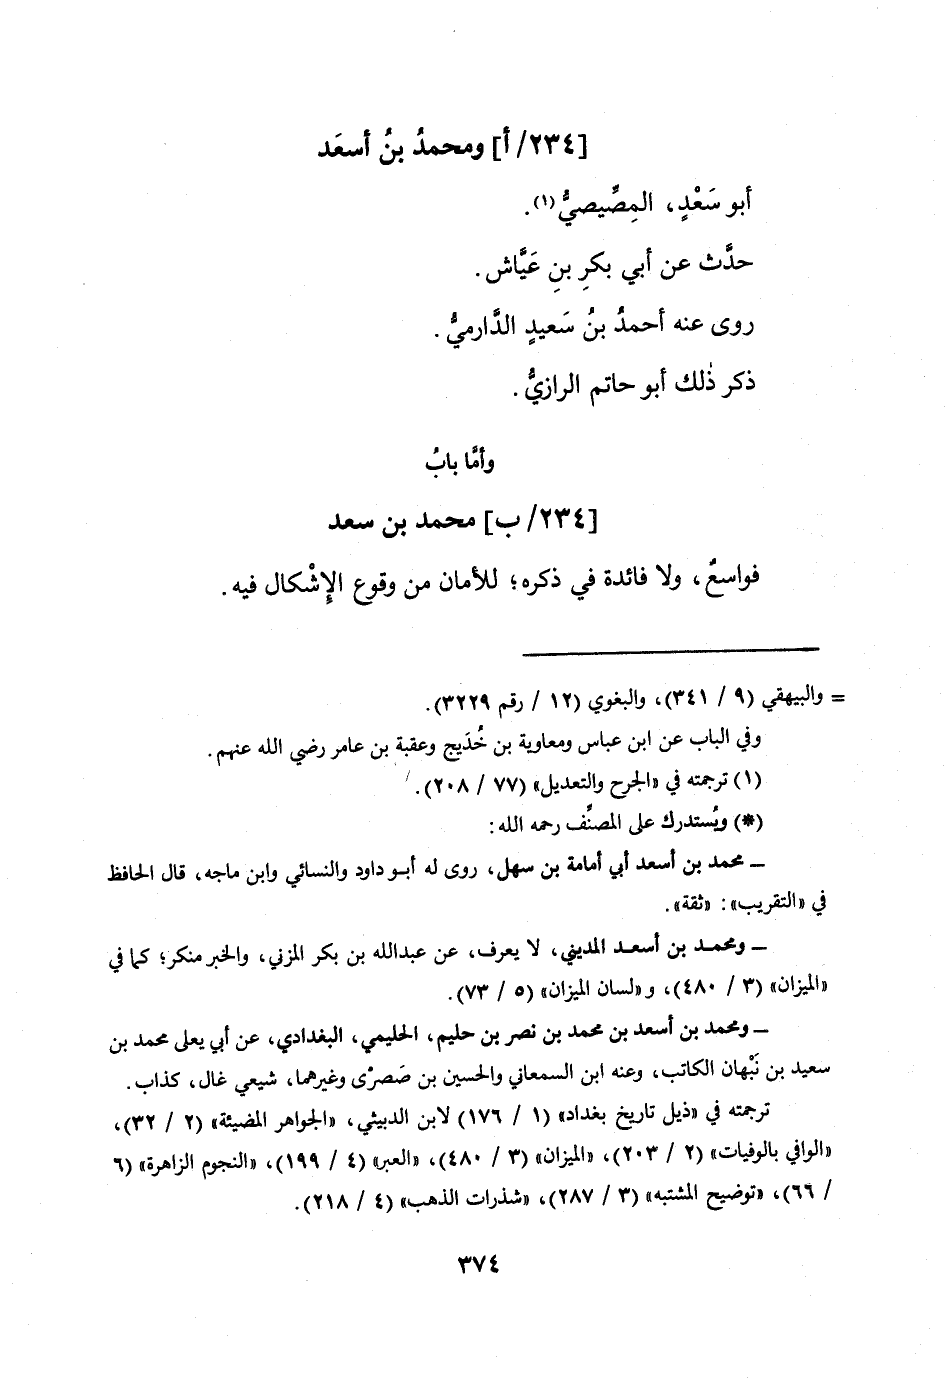 [٢٣٤/ أ] ومحمدُ بنُ أسعَد
أبو سَعْدٍ، المِصِّيصيُّ (١).
حدَّث عن أبي بكرِ بنِ عَيَّاش.
روى عنه أحمدُ بنُ سَعيدٍ الدَّارميُّ.
ذكر ذٰلك أبو حاتم الرازيُّ.
وأمَّا بابُ
[٢٣٤/ ب] محمد بن سعد
فواسعٌ، ولا فائدة في ذكره؛ للأمان من وقوع الإِشْكال فيه.
= والبيهقي (٩ / ٣٤١)، والبغوي (١٢ / رقم ٣٢٢٩).
وفي الباب عن ابن عباس ومعاوية بن خُدَيج وعقبة بن عامر رضي الله عنهم.
(١) ترجمته في «الجرح والتعديل» (٧٧ / ٢٠٨).
(*) ويُستدرك على المصنِّف رحمه الله:
ــ محمد بن أسعد أبي أمامة بن سهل، روى له أبـو داود والنسائي وابن ماجه، قال الحافظ
في «التقريب»: «ثقة».
ــ ومحمـد بن أسعـد المديني، لا يعرف، عن عبدالله بن بكر المزني، والخبر منكر؛ كما في
«الميزان» (٣ / ٤٨٠)، و «لسان الميزان» (٥ / ٧٣).
ــ ومحمد بن أسعد بن محمد بن نصر بن حليم، الحليمي، البغدادي، عن أبي يعلى محمد بن
سعيد بن نَبْهان الكاتب، وعنه ابن السمعاني والحسين بن صَصرْى وغيرهما، شيعي غال، كذاب.
ترجمته في «ذيل تاريخ بغداد» (١ / ١٧٦) لابن الدبيثي، «الجواهر المضيئة» (٢ / ٣٢)،
«الوافي بالوفيات» (٢ / ٢٠٣)، «الميزان» (٣ / ٤٨٠)، «العبر» (٤ / ١٩٩)، «النجوم الزاهرة» (٦
/ ٦٦)، «توضيح المشتبه» (٣ / ٢٨٧)، «شذرات الذهب» (٤ / ٢١٨).
٣٧٤